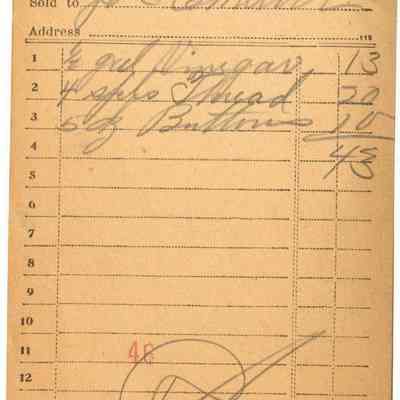 Sold to
Address
1 ½ gal Vinegar, 13
2 4 spls Thread 20
3 5 dz Buttons 10
4 43
5
6
7
8
9
10
11 46
12